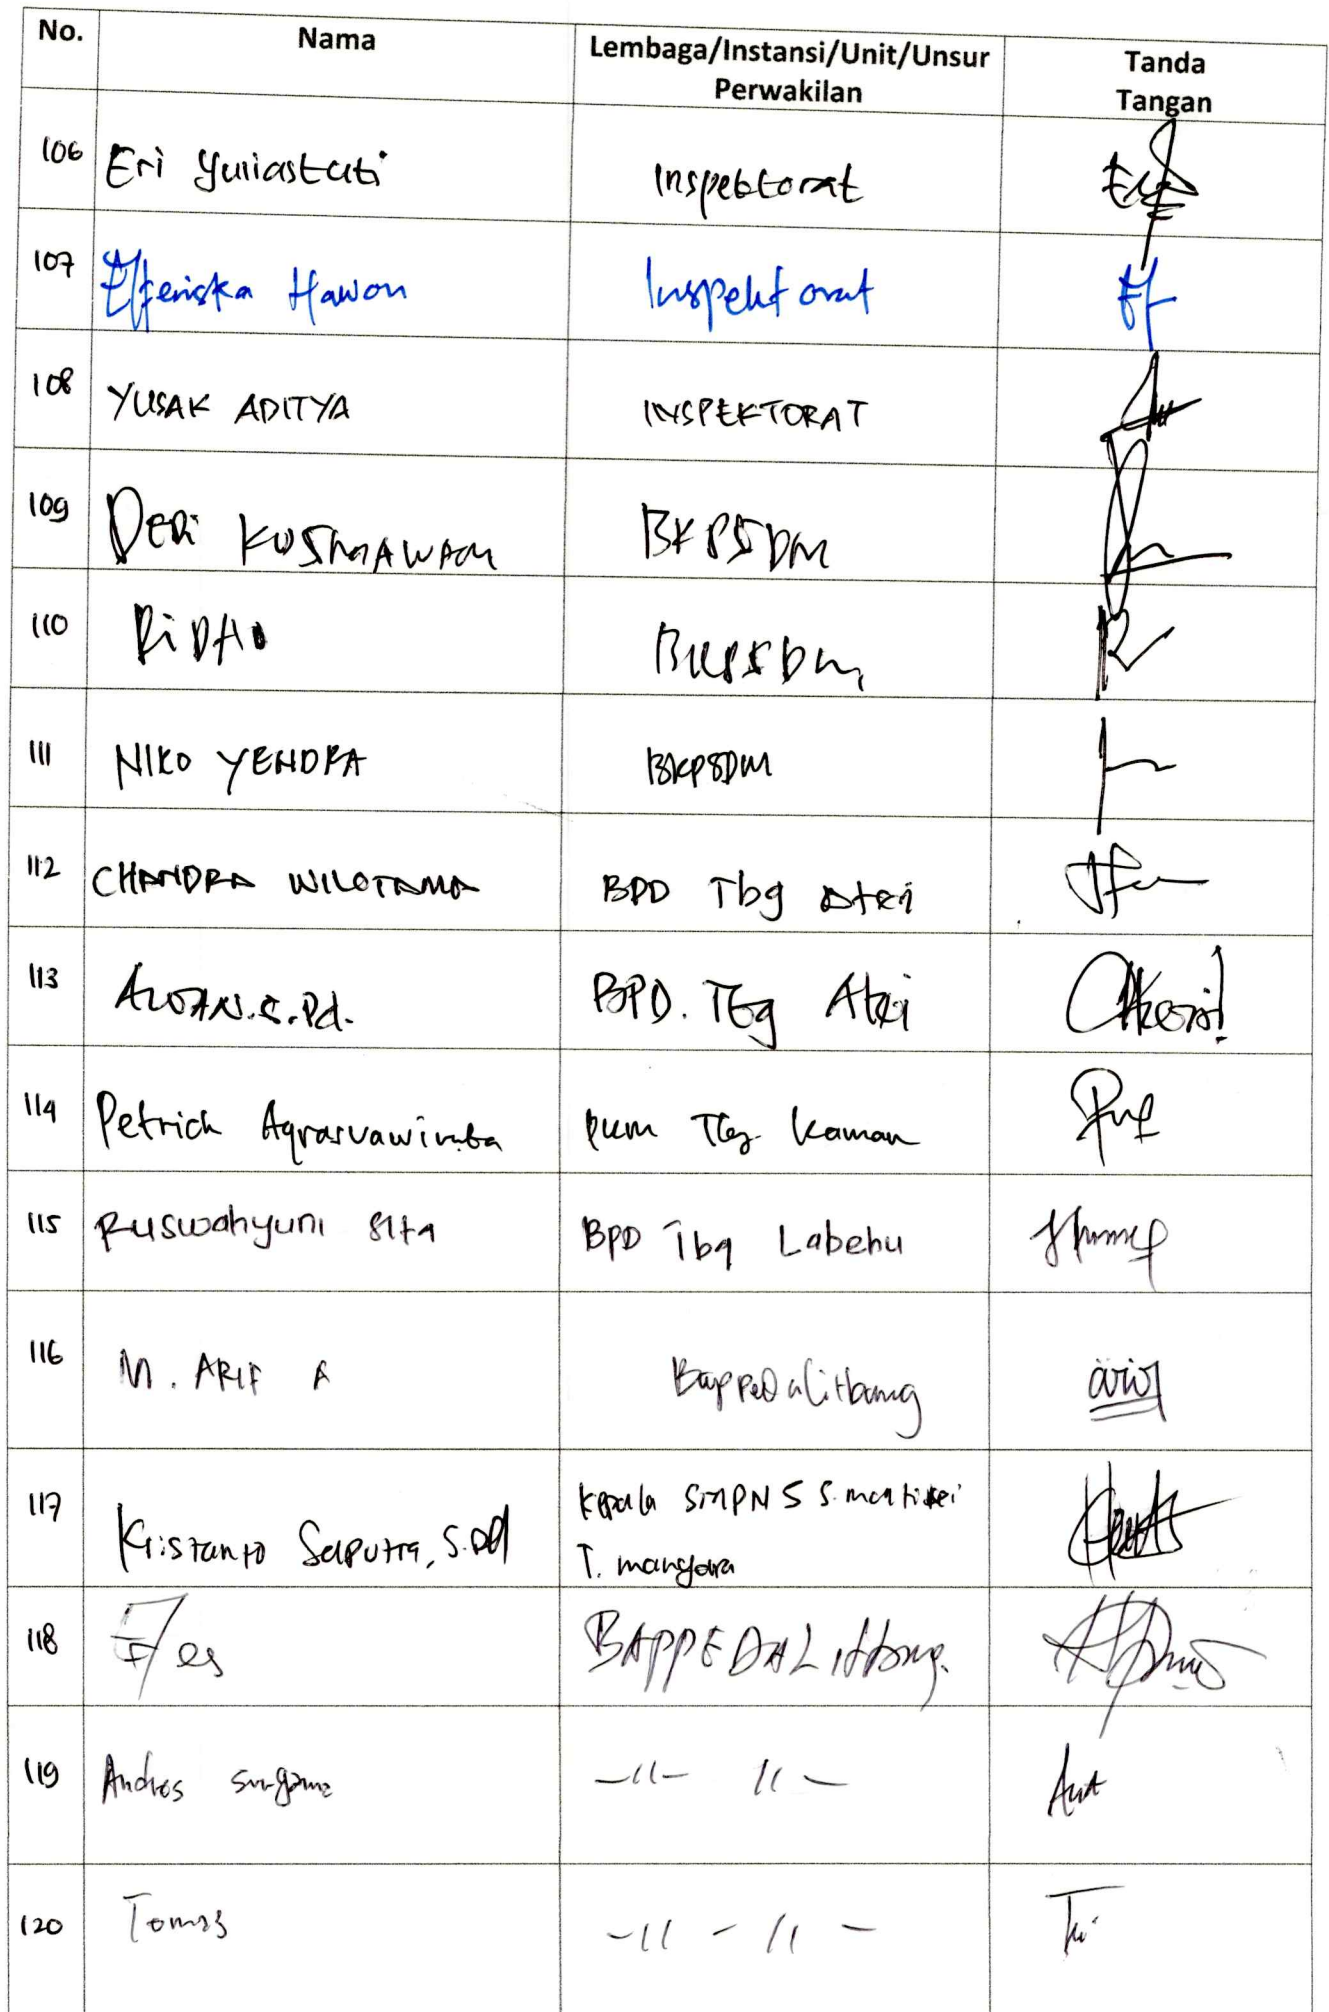 No. Nama Lembaga/Instansi/Unit/Unsur Perwakilan Tanda Tangan
106 Eri Yuliastuti Inspektorat
107 Effeniska Hawon Inspektorat
108 YUSAK ADITYA INSPEKTORAT
109 DERi KUSMAWAN BKPSDM
110 RiDHO BKPSDM
111 NIKO YENDRA BKPSDM
112 CHANDRA WILOTAMA BPD Tbg Atei
113 BPD. Tbg Atei
114 Petrich Tbg. Kaman
115 Ruswahyuni BPD Tbg Labehu
116 M. ARIF A Bappedalitbang
117 Kristanto Saputra, S.Pd Kepala SMPN 5 S. T.
118 BAPPEDALitbang.
119 -11- 11 -
120 Tomas -11 - 11 -